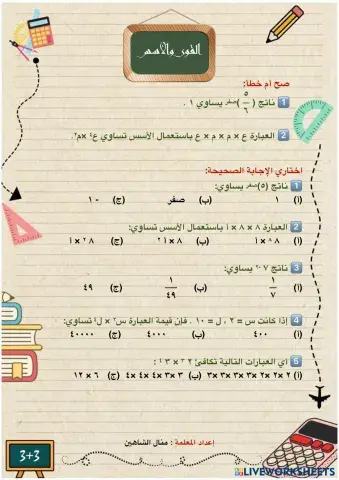 القوى والأسس
صح أم خطأ:
1 ناتج (٥/٦)صفر يساوي ١ .
2 العبارة ع × م × م × ع باستعمال الأسس تساوي ع٤ ×م٢.
اختاري الإجابة الصحيحة:
1 ناتج (٥)صفر يساوي:
(أ) ١ (ب) صفر (ج) -١٠
2 العبارة ٨ × ٨ × أ باستعمال الأسس تساوي:
(أ) (ب) (ج)
3 ناتج ٧-٢ يساوي:
(أ) ١/٧ (ب) ١/٤٩ (ج) ٤٩
4 إذا كانت س = ٢ ، ل = ١٠ . فإن قيمة العبارة س٢ × ل٤ تساوي:
(أ) ٤٠٠ (ب) ٤٠٠٠ (ج) ٤٠٠٠٠
5 أي العبارات التالية تكافئ
(أ) ٢ × ٢ × ٣ × ٣ × ٣ (ب) ٣ × ٣ × ٣ × ٣ (ج) ٦ × ١٢
إعداد المعلمة : منال الشاهين
3+3
LIVEWORKSHEETS